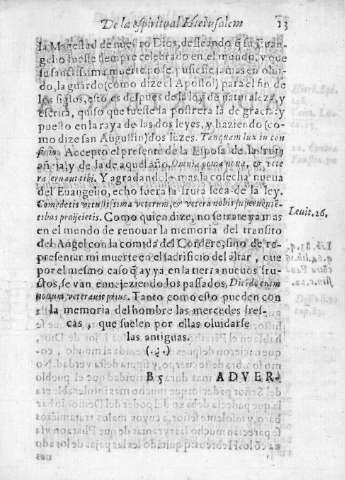 De la espiritual Hierusalem 13
la Magestad de nuestro Dios, desseando q̃ su euan-
gelio fuesse siempre celebrado en el mundo, y que
su sanctissima muerte, no se pusiesse jamas en olui-
do, la guardo (como dize el Apostol) para el fin de
los siglos, esto es despues de la ley de naturaleza, y
escrita, quiso que fuesse la postrera la de gracia: y
puesto en la raya de las dos leyes, y haziendo (co-
mo dize san Augustin) dos luzes. Tanquam lux in con
finio. Accepto el presente de la Esposa de la fruta
añeja, y de la de aquel año. Omnia poma noua, & vete
ra seruaui tibi. Y agradandole mas la cosecha nueua
del Euangelio, echo fuera la fruta seca de la ley.
Comedetis vetustissima veterum, & vetera nobis superuenien-
tibus projicietis. Como quien dize, no se trate ya mas
en el mundo de renouar la memoria del transito
del Angel con la comida del Cordero, sino de re-
presentar mi muerte en el sacrificio del altar, que
por el mismo caso q̃ ay ya en la tierra nueuos fru-
ctos, se van enuejeziendo los passados. Dicendo enim
nouum veterauit prius. Tanto como esto pueden con
la memoria del hombre las mercedes fres-
cas, que suelen por ellas oluidarse
las antiguas.
Leuit. 26.
B 5 ADVER-